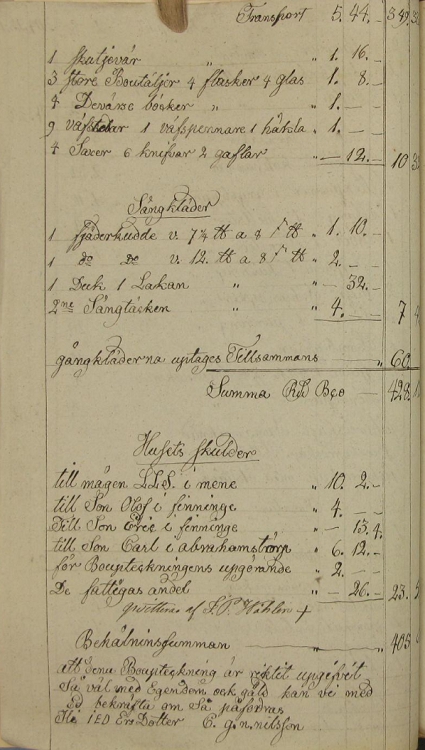 Transport 5. 44. – 349. 3
1 skutjevär " " 1. 16. –
3 store Boutäljer 4 flasker 4 glas " 1. 8. –
4 Devärse böcker " " 1. – –
9 väfskedar 1 väfspennare 1 häkla " 1. – –
4 Saxer 6 knifvar 2 gaflar " – 12. – 10 3
Sängkläder
1 fjäderkudde v. 7¼ ℔ a 8 ℔ " 1. 10. –
1 do De v. 12. ℔ a 8 ℔ " 2. – –
1 Duk 1 Lakan " " – 32. –
2ne Sängtäcken " " 4. – – 7
gångkläderna uptages Tillsammans " 60.
Summa RD Bco – 428.
Husets skulder
till mågen L.L.S. i mene " 10. 2. –
till Son Olof i finninge " 4. – –
Till Son Eric i finninge " – 13. 4.
till Son Carl i abrahamstorp " 6. 12. –
för Bouptekningens upgörande " 2. – –
De fattigas andel " – 26. – 23. 5
qvitteras af
Behålninsumman 405
att denna Bouptekning är riktit upgifvit
Så väl med Egendom ock gäld kan vi med
Ed bekräfta om Så påfodras
Ers Dotter C. g. n. nilsson